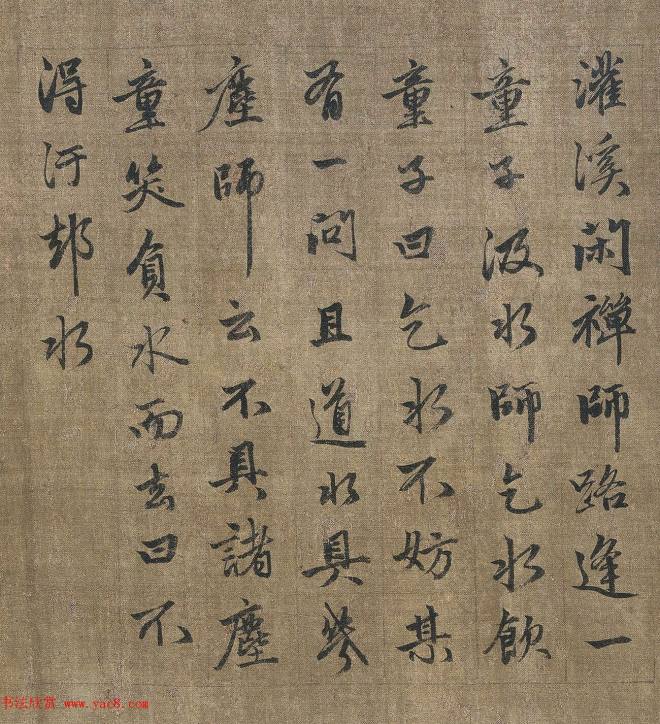 灌溪闲禅師路逢一
童子汲水師乞水飲
童子曰乞水不妨某
有一問且道水具幾
塵師云不具諸塵
童笑負水而去曰不
得汙却水
书法欣赏 www.yac8.com